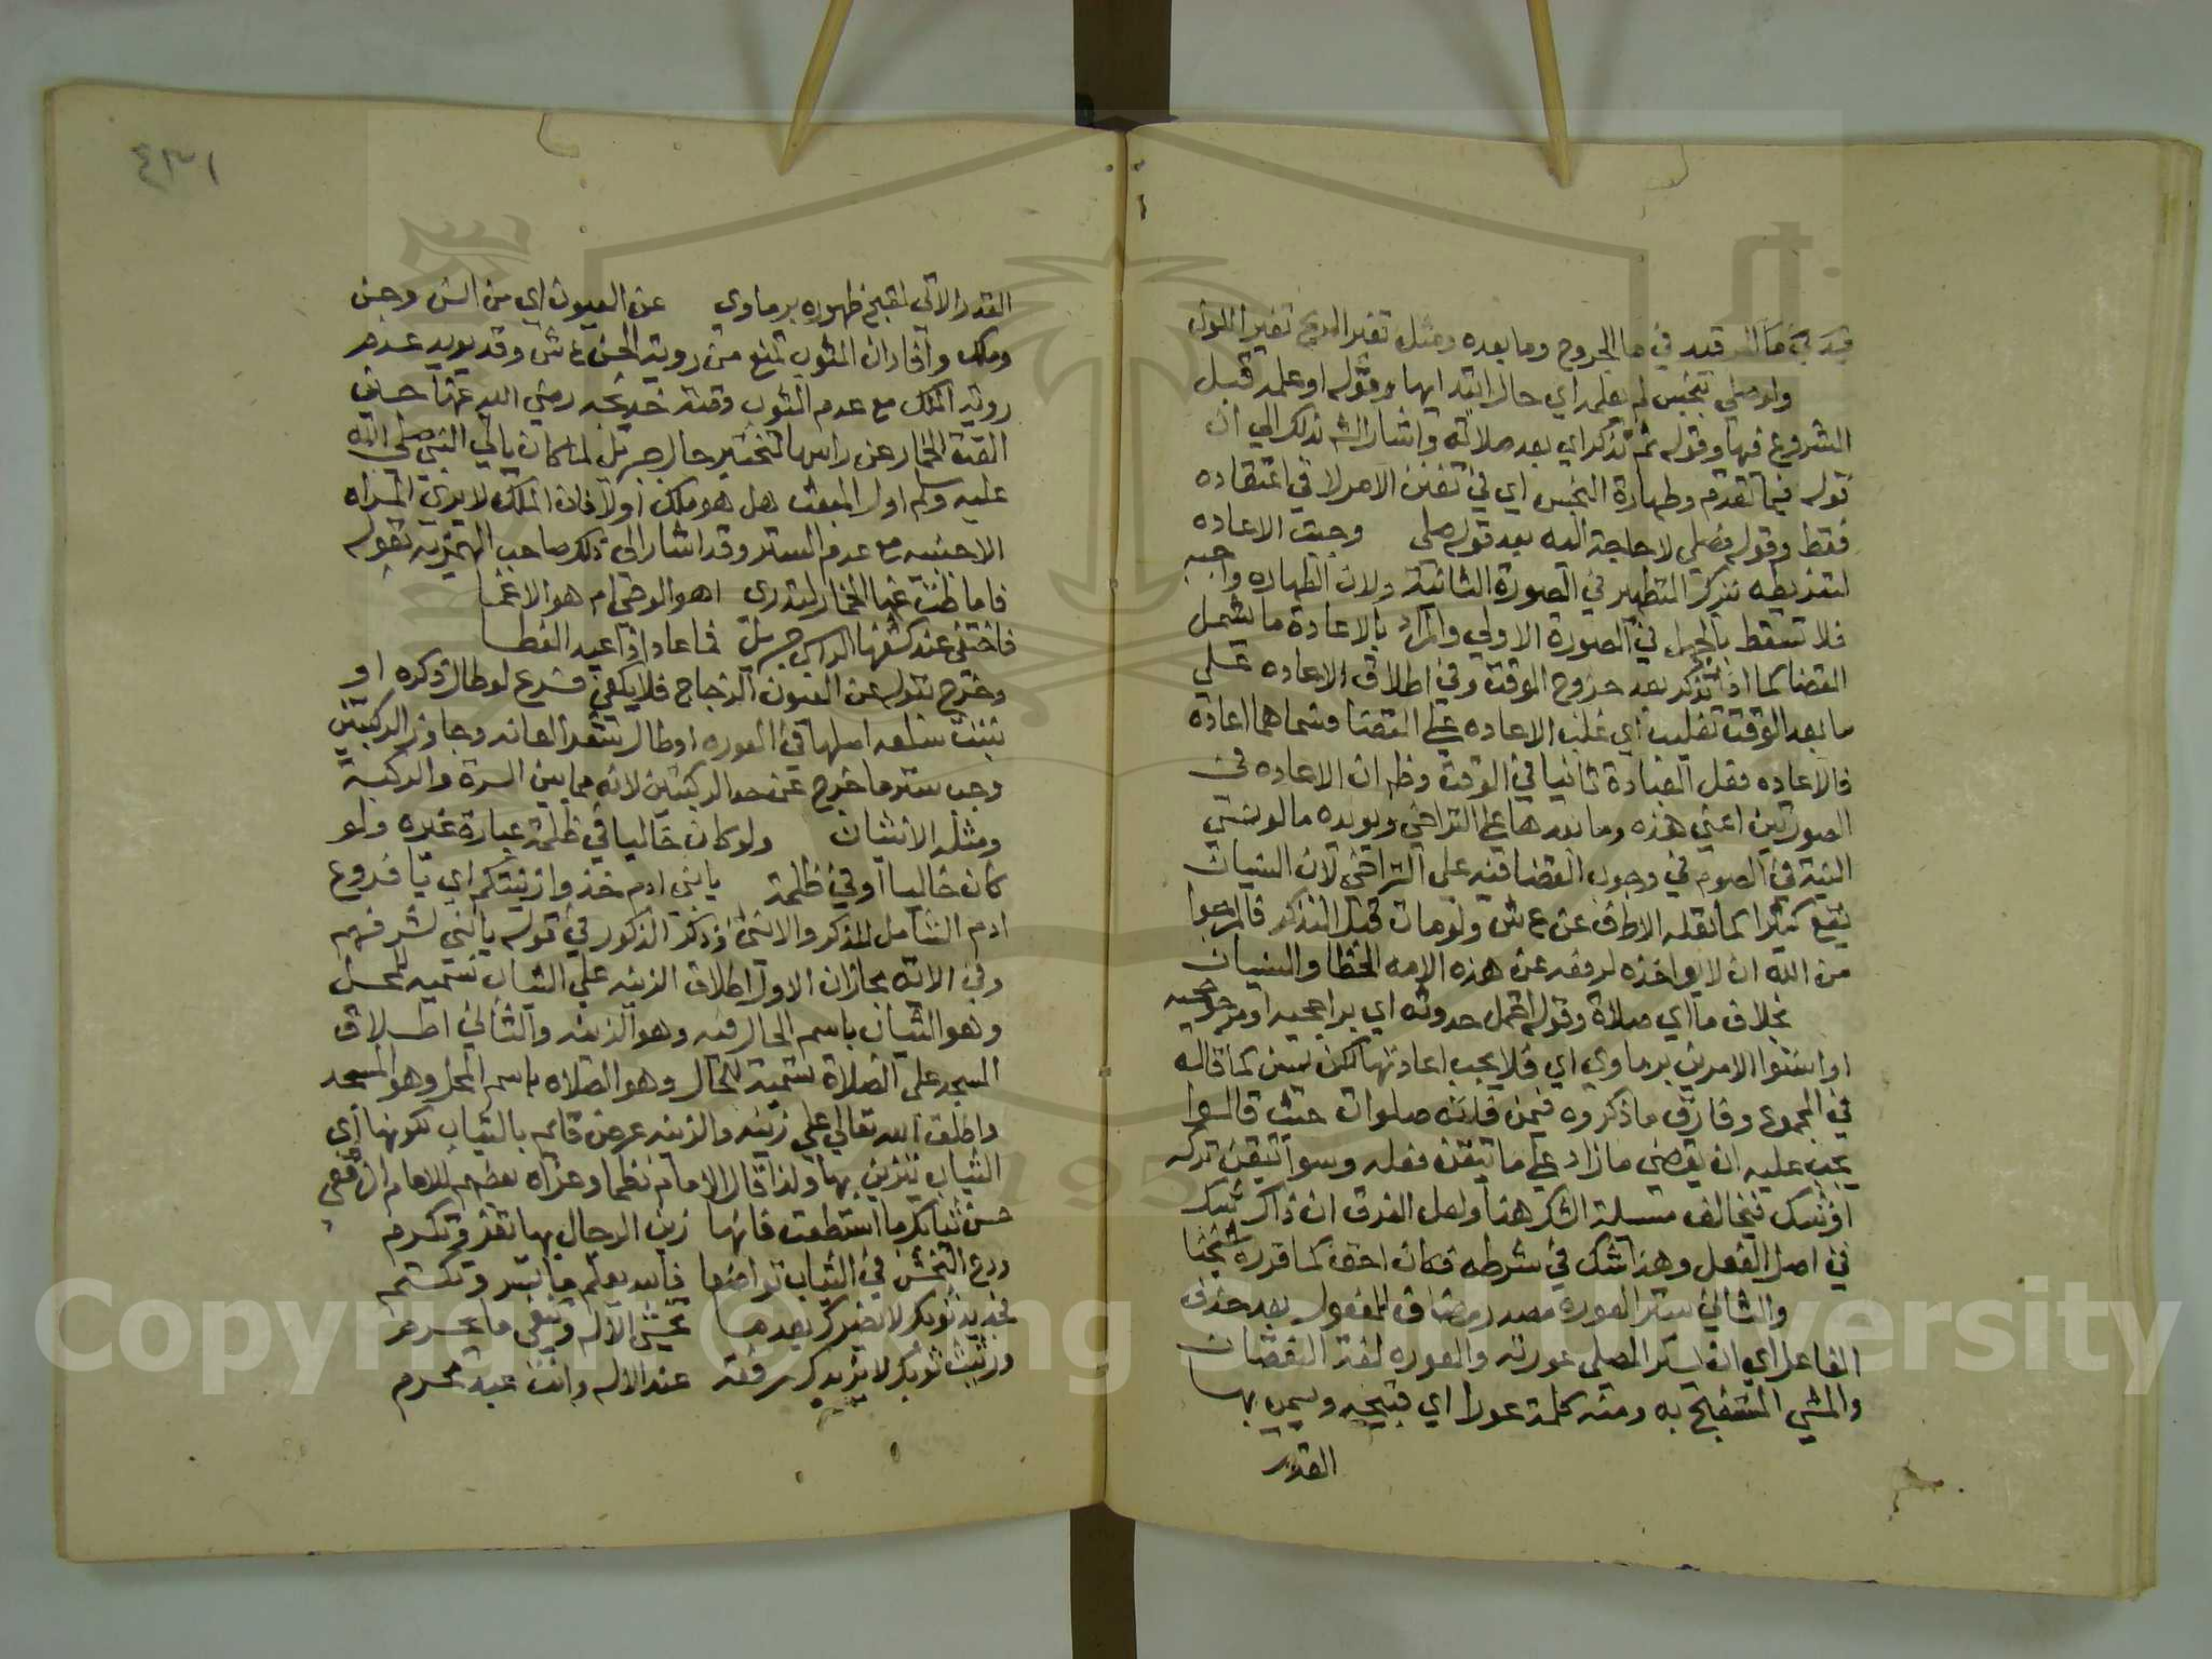 قيد في ماله قيد في مال الجروح وما بعده ومثل تغير الريح تغير اللون
ولو صلي بنجس لم يعلمه اي حال ابتدايها وقوله او علمه قبل
الشروع فيها وقوله ثم تذكر اي بعد صلاته واشار الشه بذلك الي ان
قوله فيما تقدم وطهارة النجس اي في نفس الامر لا في اعتقاده
فقط وقوله فصلي لا حاجة اليه بعد قوله صلي وجبت الاعاده
لتفريطه بترك التطهير في الصورة الثانية ولان الطهاره واجبه
فلا تسقط بالجهل في الصورة الاولي والمراد بالاعادة ما يشمل
القضا كما اذا تذكر بعد خروج الوقت وفي اطلاق الاعاده علي
ما بعد الوقت تغليب اي غلب الاعاده علي القضا وسماهما اعاده
فالاعاده فعل العبادة ثانيا في الوقت وظهر ان الاعاده في
الصورتين اعني هذه وما بعدها علي التراخي ويويده ما لو نسي
النية في الصوم في وجوب القضا فيه علي التراخي لان النسيان
يقع كثيرا كما نقله الاطف عن ع ش ولو مات قبل التذكر فالمرجوا
من الله ان لا يواخذه لرفعه عن هذه الامه الخطا والنسيان
بخلاف ما اي صلاة وقوله احتمل حدوثه اي براجحيه او مرجوحيه
او استوا الامرين برماوي اي فلا يجب اعادتها لكن تسن كما قاله
في المجموع وفارق ما ذكروه فيمن فاتته صلوات حيث قالوا
يجب عليه ان يقضي ما زاد علي ما تيقن فعله وسوا تيقن تركه
او شك فيخالف مسيلة الشك هنا ولعل الفرق ان ذاك شك
في اصل الفعل وهذا شك في شرطه فكان اخف كما قرره شيخنا
والثاني ستر العورة مصدر مضاف للمفعول بعد حذف
الفاعل اي ان يستر المصلي عورته والعوره لغة النقصان
والشي المستقبح به ومنه كلمة عورا اي قبيحه وسمي بها
القدر
٤٣١
القدر الاتي لقبح ظهوره برماوي عن العيون اي من انس وجن
وملك وافاد ان الثوب تمنع من روية الجن ع ش وقد يويد عدم
روية الملك مع عدم الثوب وقصة خديجه رضي الله عنها حين
القت الخمار عن راسها لتختبر حال جبريل لما كان ياتي النبي صلي الله
عليه وسلم اول البعث هل هو ملك او لا فان الملك لا يري المراه
الاجنبيه مع عدم الستر وقد اشار الي ذلك صاحب الهمزيه بقوله
فاماطت عنها الخمار لتدري اهو الوحي ام هو الاغما
فاختفي عند كشفها الراس جبريل فما عاد او اعيد الغطا
وخرج بقوله عن العيون الزجاج فلا يكفي فرع لو طال ذكره او
نبتت سلعه اصلها في العوره او طال شعر العانه وجاوز الركبتين
وجب ستر ما خرج عن حد الركبتين لانه مما بين السرة والركبة
ومثله الانثيان ولو كان خاليا في ظلمة عبارة غيره ولو
كان خاليا او في ظلمة يا بني ادم خذوا زينتكم اي يا فروع
ادم الشامل للذكر والانثي وذكر الذكور في قوله يا بني لشرفهم
وفي الايه مجازان الاول اطلاق الزينه علي الثياب تسميه للمحل
وهو الثياب باسم الحال فيه وهو الزينه والثاني اطلاق
المسجد علي الصلاة تسمية للحال وهو الصلاه باسم المحل وهو المسجد
واطلق الله تعالي علي زينه والزينه عرض قايم بالثياب لكونها اي
الثياب يتزين بها ولذا قال الامام نظما وعزاه بعضهم للامام الشافعي
حسن ثيابك ما استطعت فانها زين الرجال بها تعز وتكرم
ودع التخشن في الثياب تواضعا فالله يعلم ما تسر وتكتم
فجديد ثوبك لا يضرك بعدما تخشي الاله وتتقي ما يحرم
ورثيث ثوبك لا يزيدك رفعة عند الاله وانت عبد مجرم